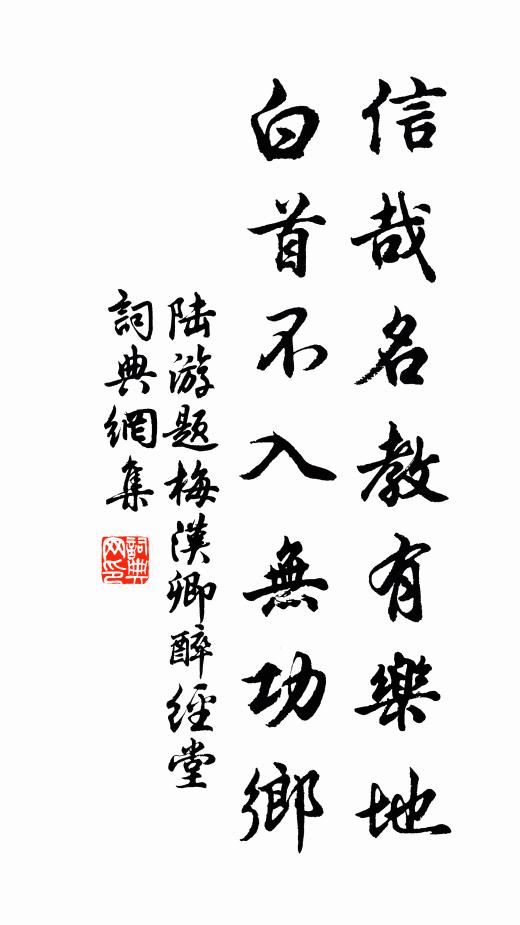 信哉名教有樂地
白首不入無功鄉
陸游題梅漢卿醉經堂
詞典網集
詞典网印